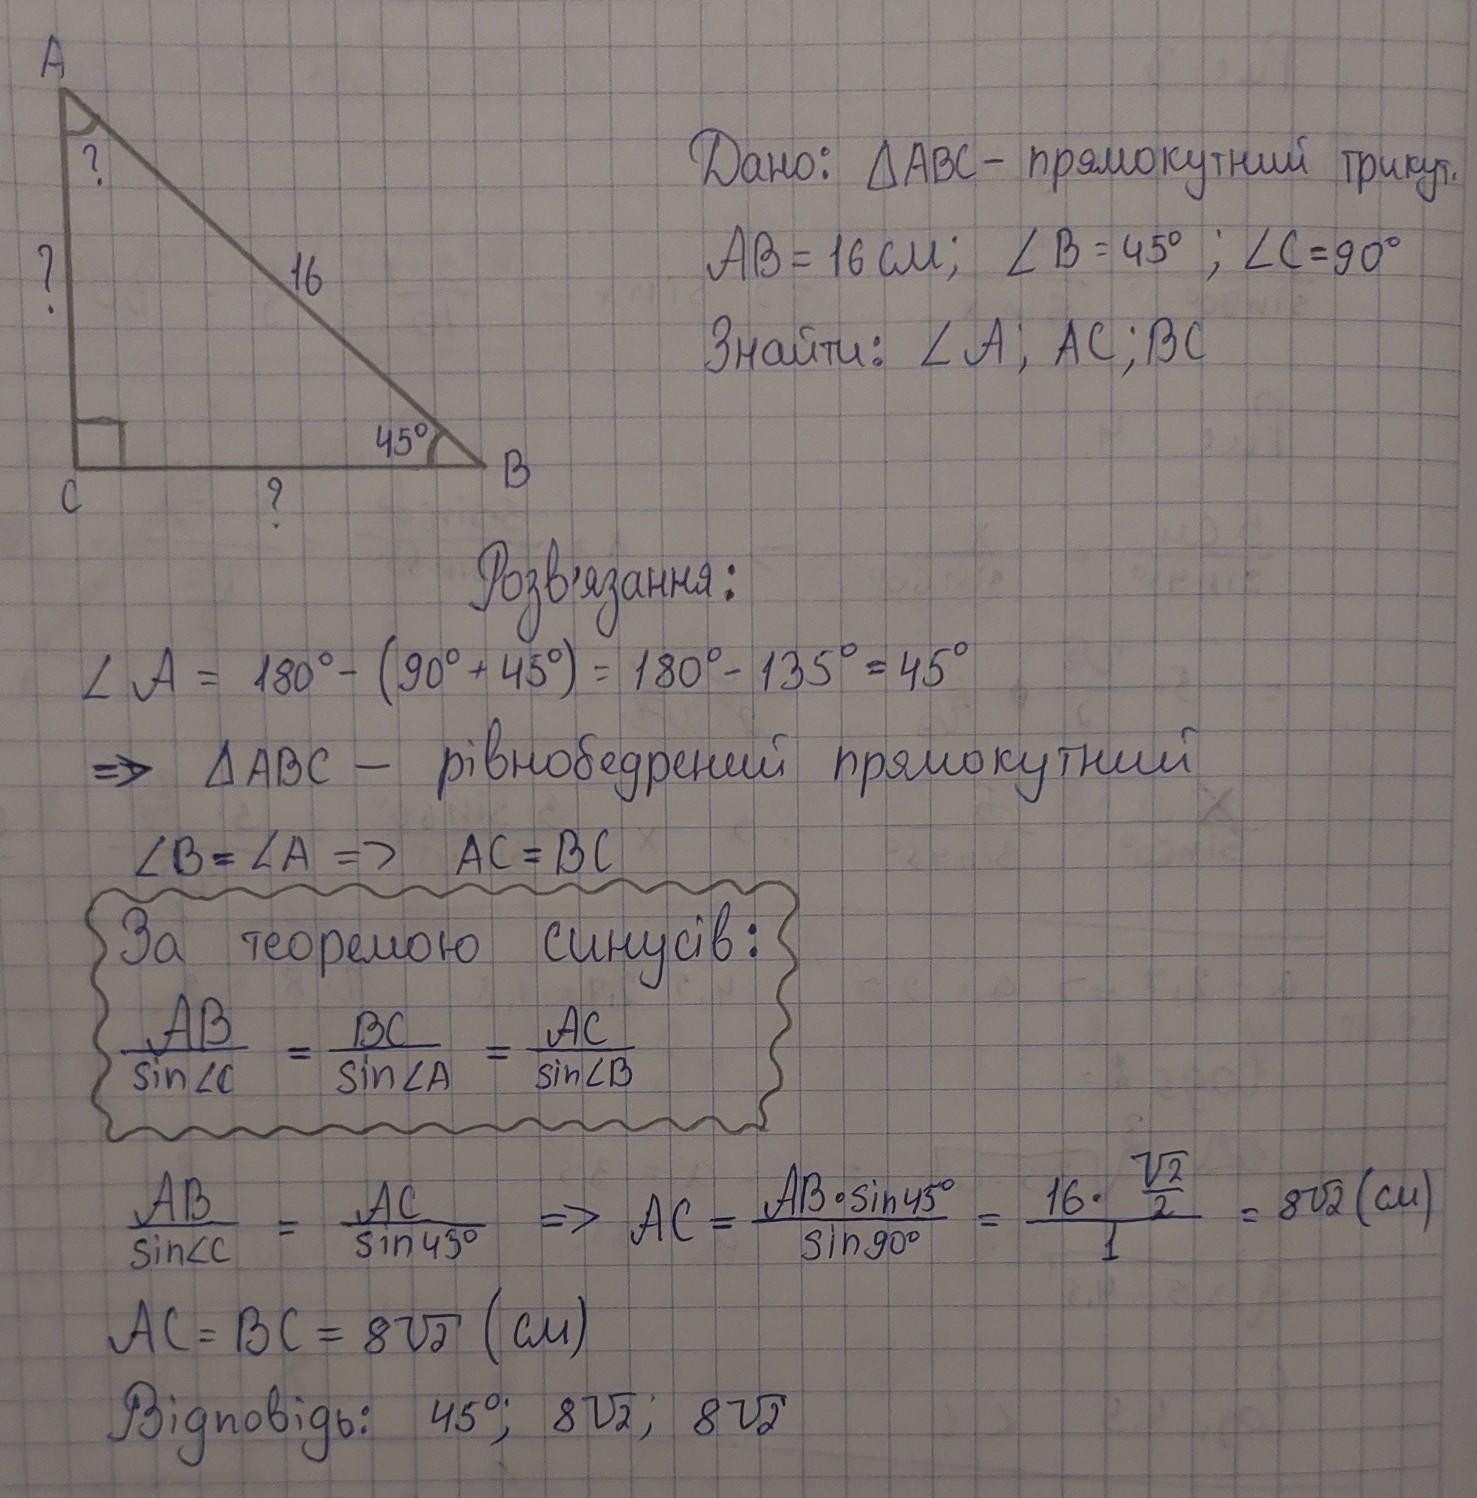 A
?
?
16
45°
C
?
B
Дано: ΔABC - прямокутний трикут.
AB = 16 см; ∠B = 45°; ∠C = 90°
Знайти: ∠A; AC; BC
Розв'язання:
∠A = 180° - (90° + 45°) = 180° - 135° = 45°
=> ΔABC — рівнобедрений прямокутний
∠B = ∠A => AC = BC
За теоремою синусів:
AB/sin∠C = BC/sin∠A = AC/sin∠B
AB/sin∠C = AC/sin45° => AC = AB·sin45°/sin90° = 16·√2/2/1 = 8√2 (см)
AC = BC = 8√2 (см)
Відповідь: 45°; 8√2; 8√2